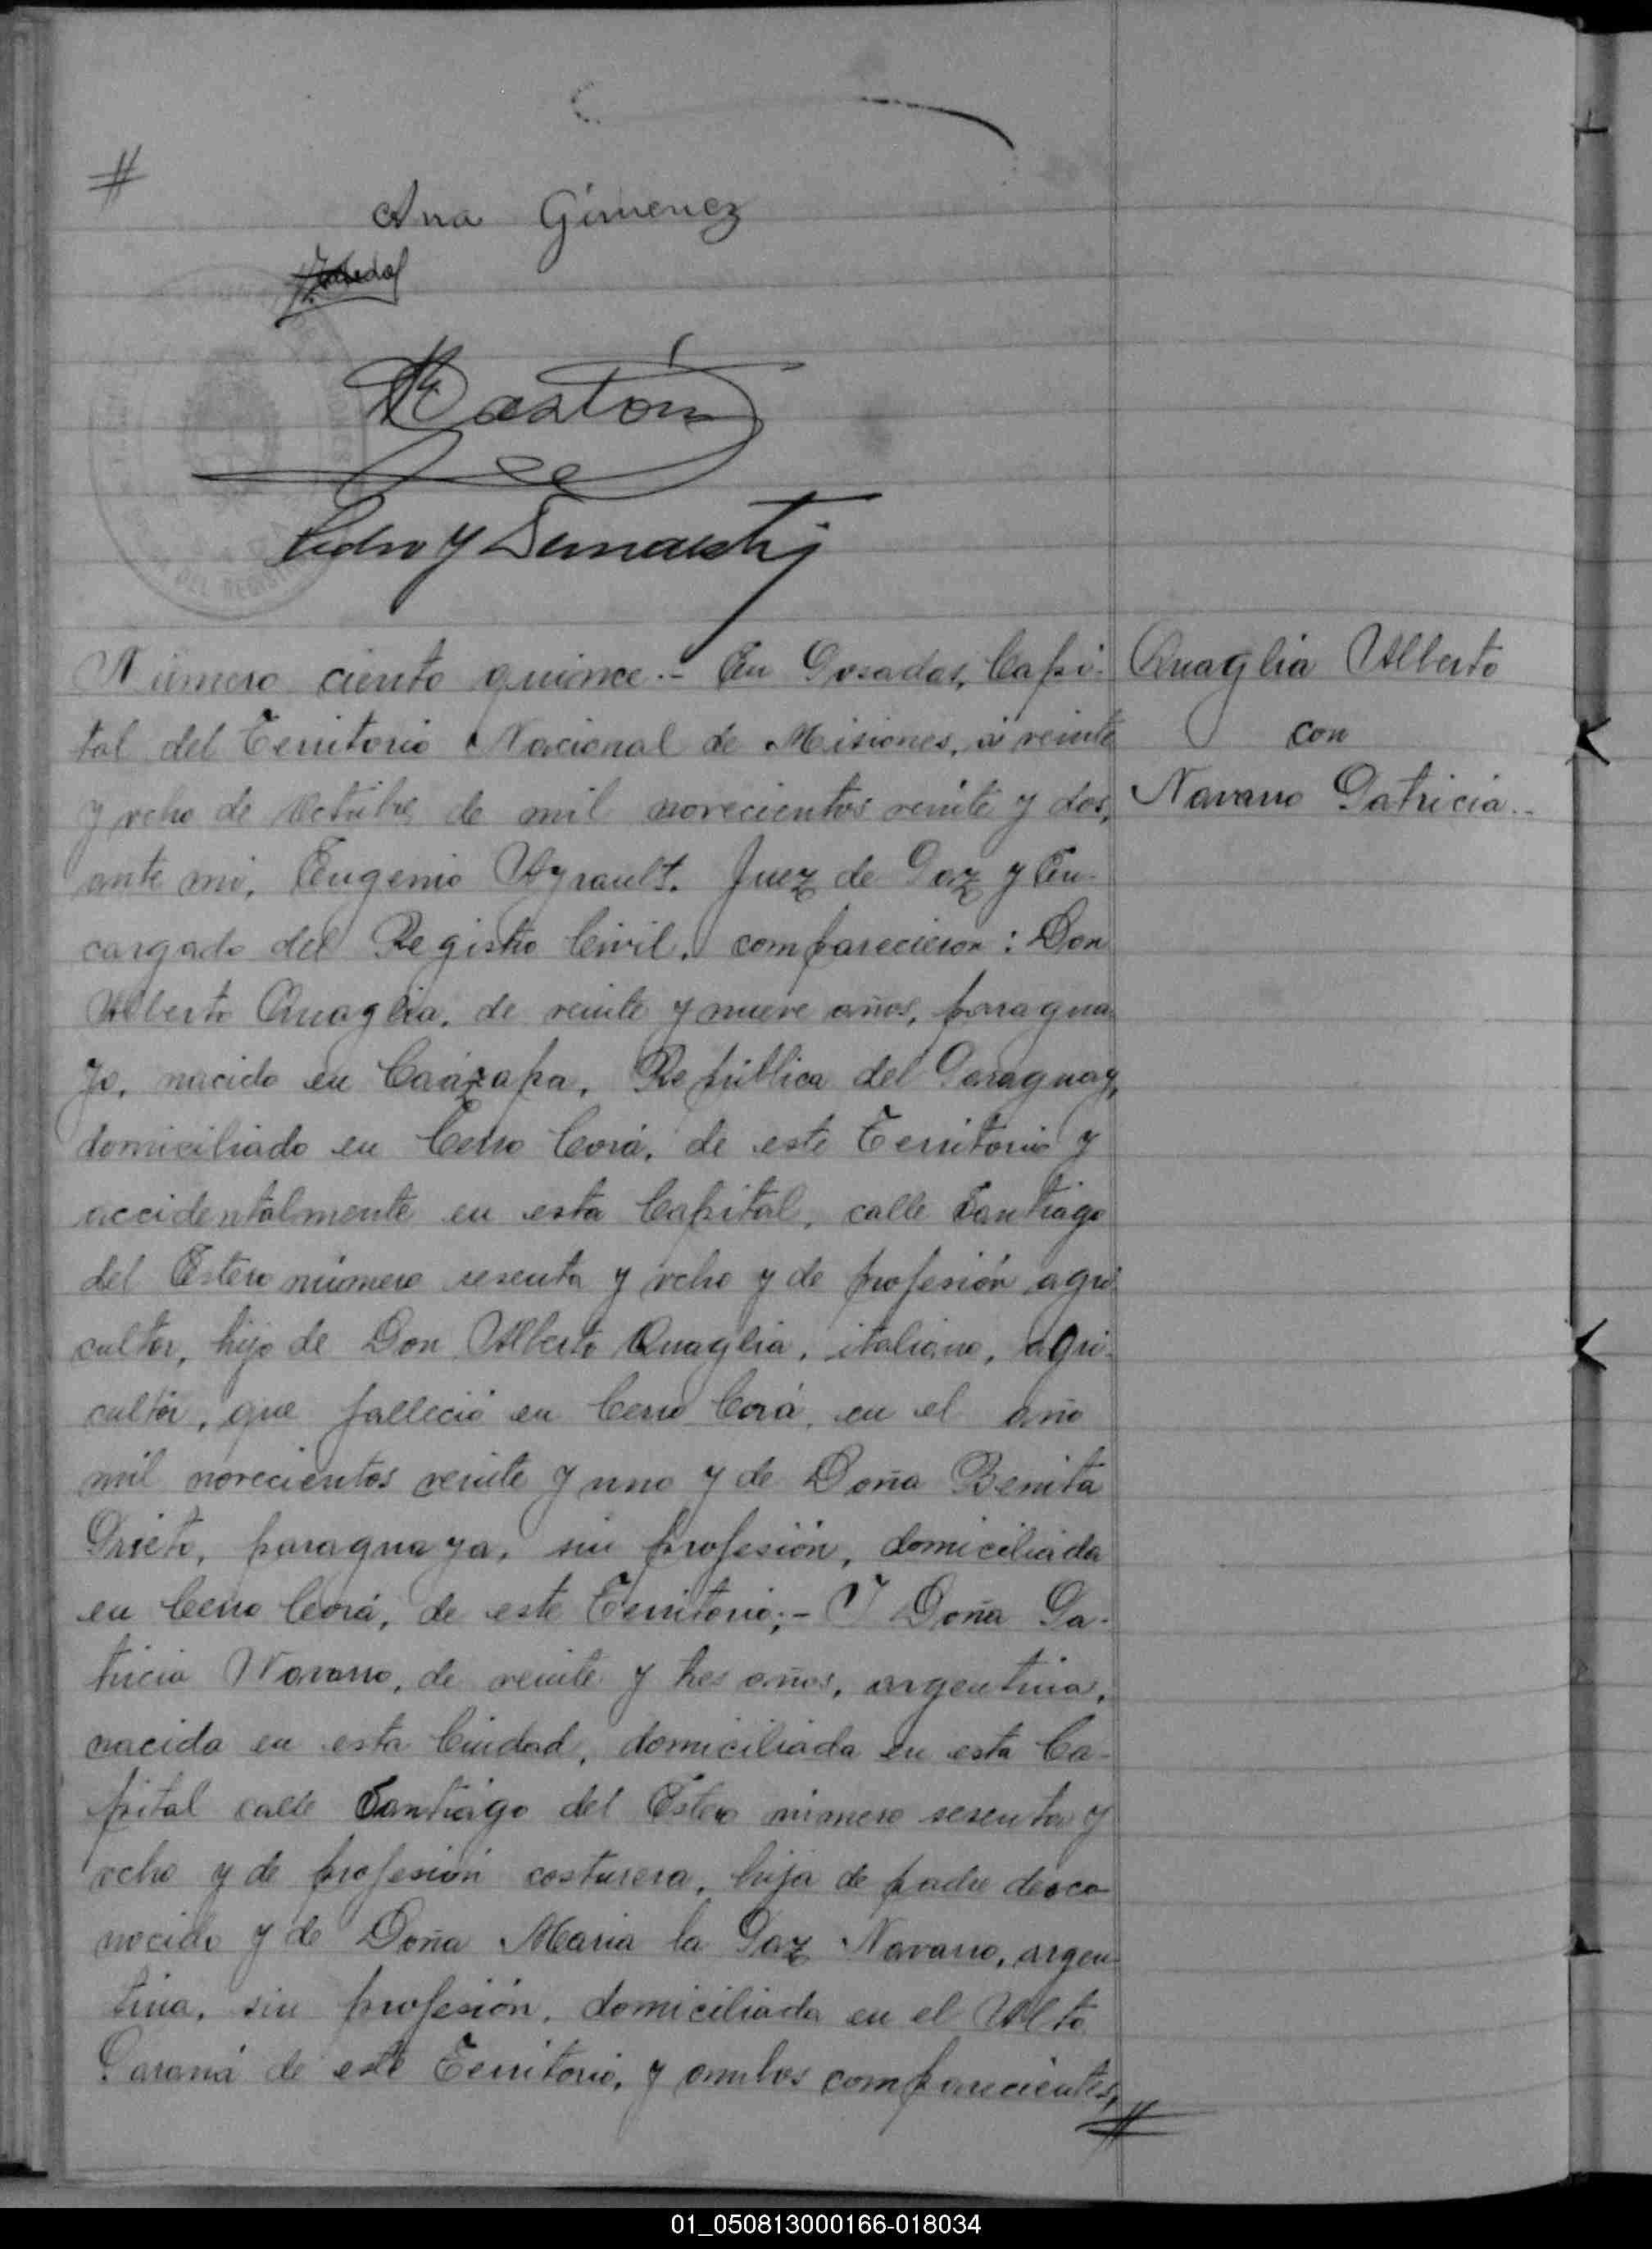 #
Ana Gimenez
Gastón
Pedro Y
DEL REGIST
Número ciento quince.- En Posadas, Capi-
tal del Territorio Nacional de Misiones, á veinte
y ocho de Octubre de mil novecientos veinte y dos,
ante mi, Eugenio Ayrault, Juez de Paz y En-
cargado del Registro Civil, comparecieron: Don
Alberto Quaglia, de veinte y nueve años, paragua-
yo, nacido en Caázapa, República del Paraguay,
domiciliado en Cerro Corá, de este Territorio y
accidentalmente en esta Capital, calle Santiago
del Estero número sesenta y ocho y de profesión agri-
cultor, hijo de Don Alberto Quaglia, italiano, agri-
cultor, que falleció en Cerro Corá, en el año
mil novecientos veinte y uno y de Doña Benita
Prieto, paraguaya, sin profesión, domiciliada
en Cerro Corá, de este Territorio;- Y Doña Pa-
tricia Navarro, de veinte y tres años, argentina,
nacida en esta Ciudad, domiciliada en esta Ca-
pital calle Santiago del Estero número sesenta y
ocho y de profesión costurera, hija de padre desco-
nocido y de Doña Maria la Paz Navarro, argen-
tina, sin profesión, domiciliada en el Alto
Paraná de este Territorio, y ambos comparecientes,
#
Quaglia Alberto
con
Navarro Patricia.-
01_050813000166-018034